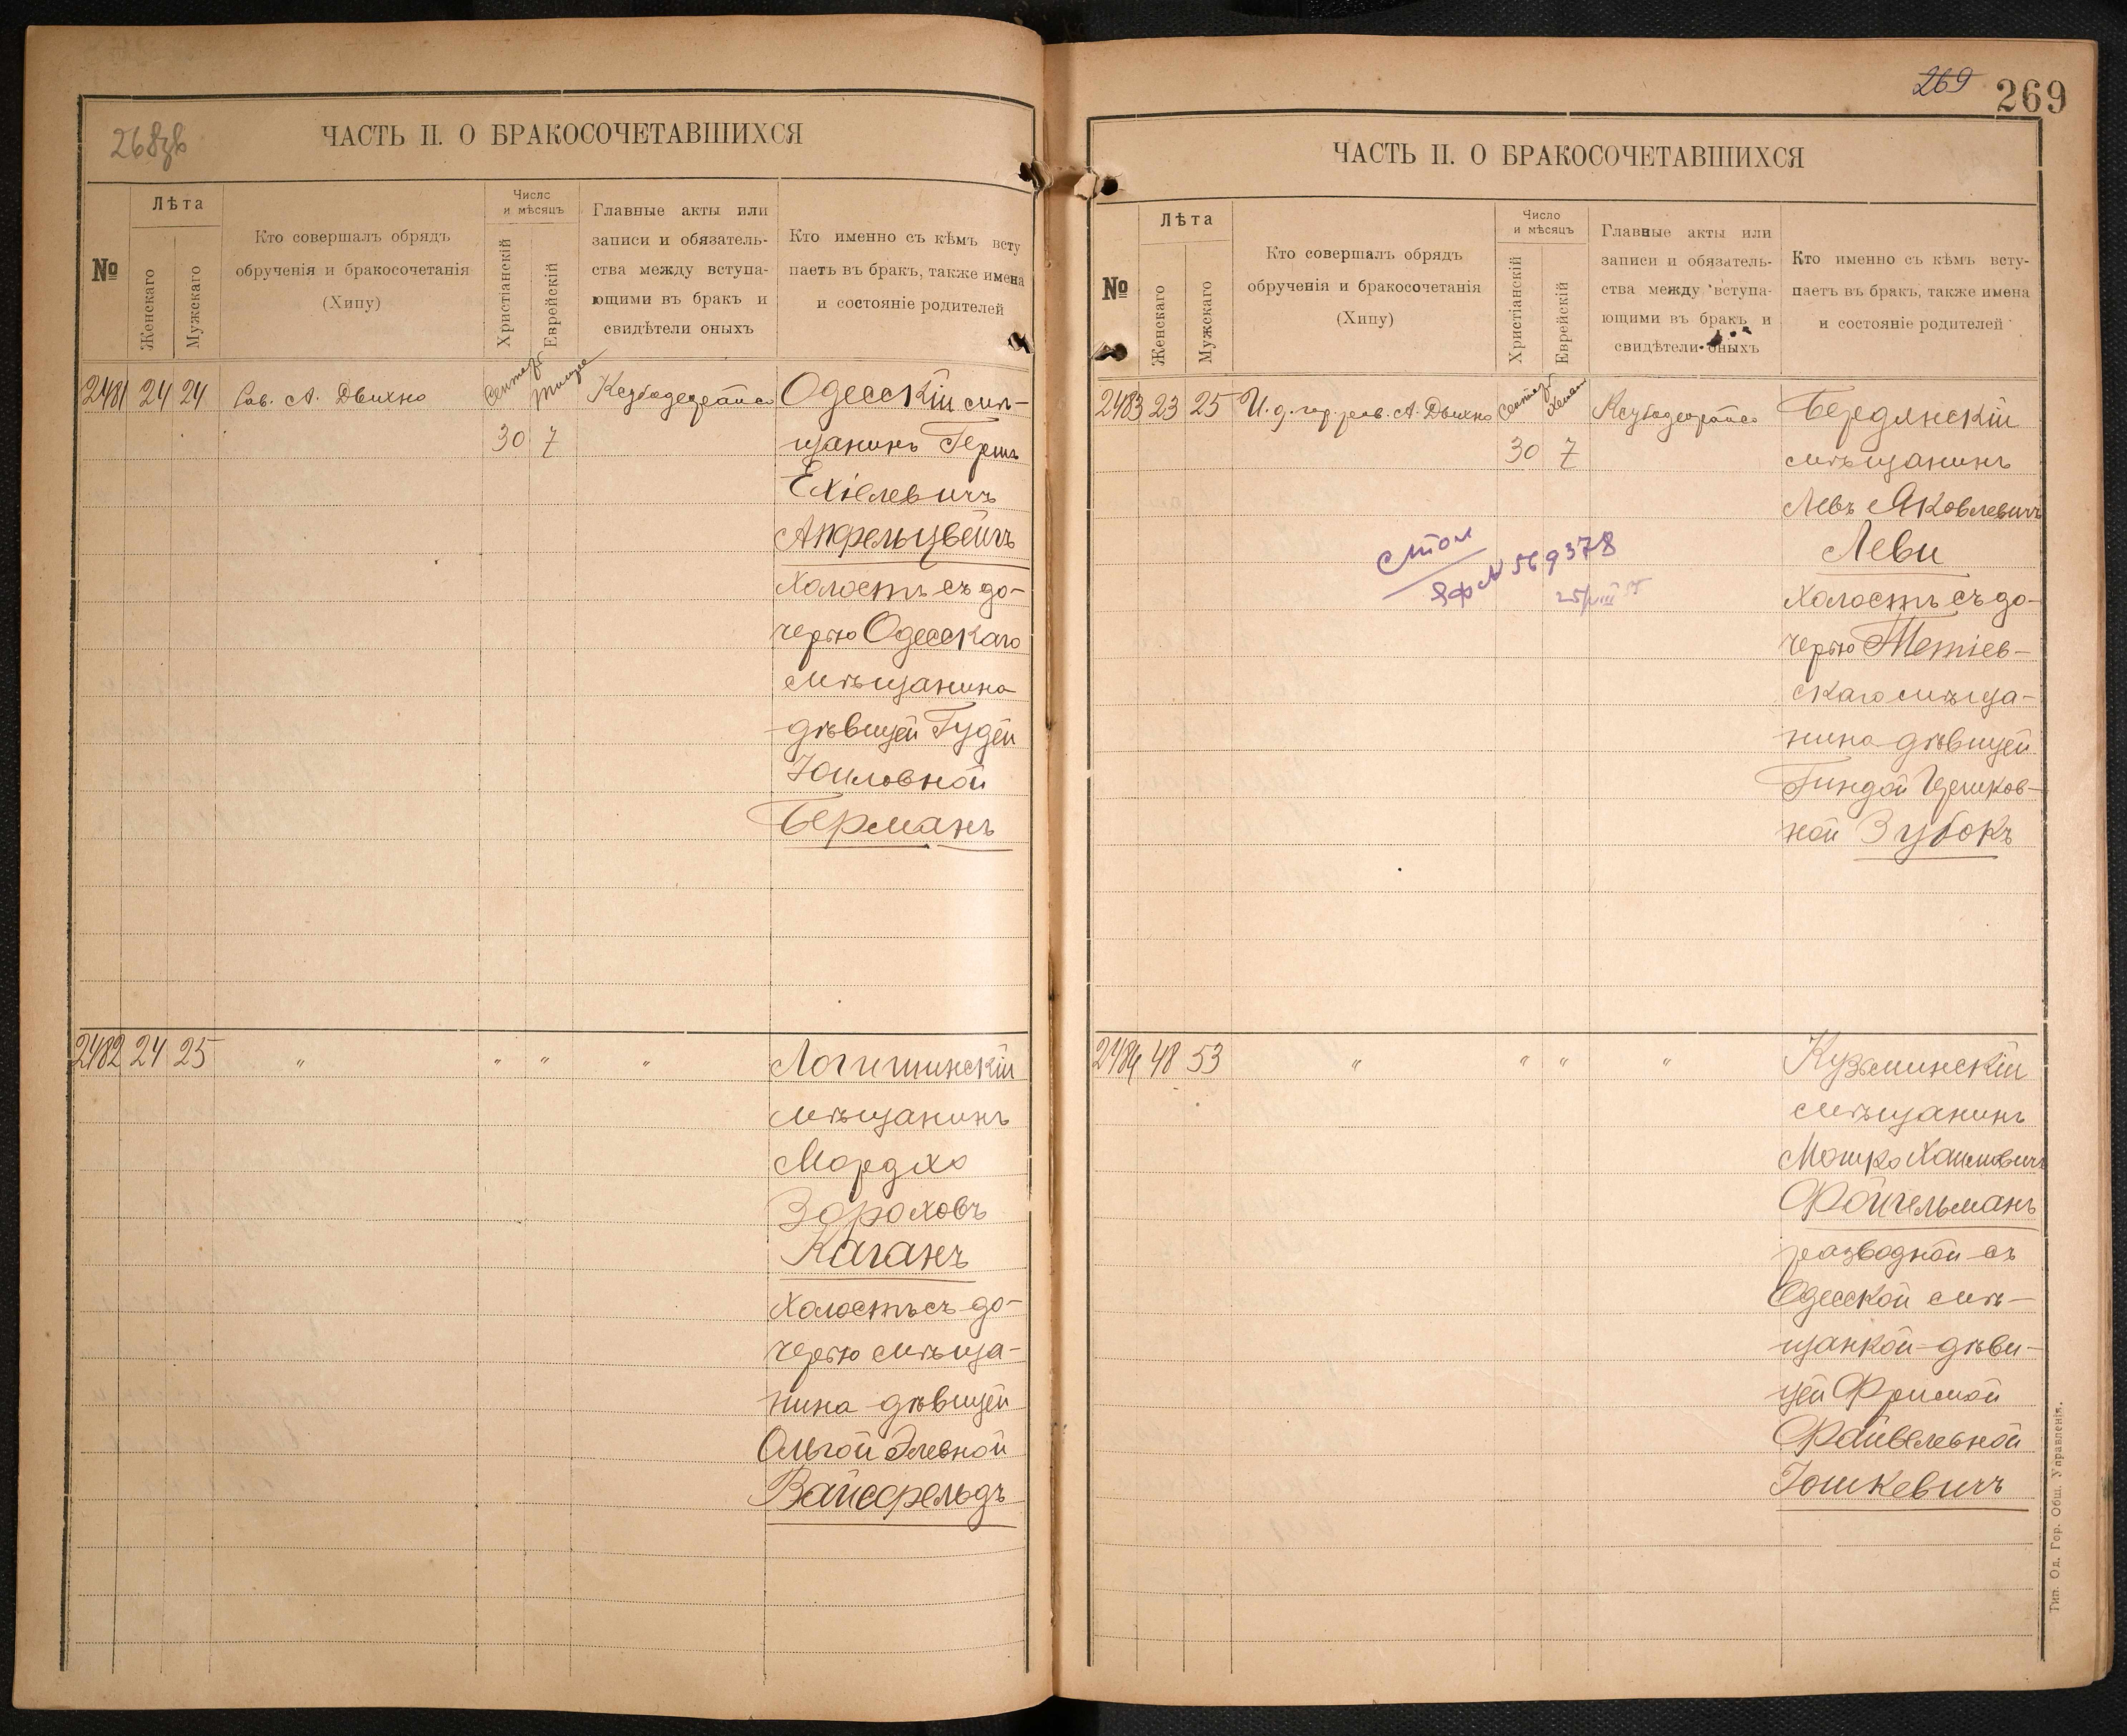 268зв
ЧАСТЬ II. О БРАКОСОЧЕТАВШИХСЯ
№
Лѣта
Женскаго
Мужскаго
Кто совершалъ обрядъ
обрученія и бракосочетанія
(Хипу)
Число
и мѣсяцъ
Христіанскій
Еврейскій
Главные акты или
записи и обязатель-
ства между вступа-
ющими въ бракъ и
свидѣтели оныхъ
Кто именно съ кѣмъ всту
паетъ въ бракъ, также имена
и состояніе родителей
2481 24 24 Рав. А. Двихно Сентяб Тишре Ксубадеграйсо Одесскій мѣ-
30 7 щанинъ Герш
Ехіелевичъ
Апфельцвейгъ
Холостъ съ до-
черью Одесскаго
мѣщанина
дѣвицей Гудей
Іоиловной
Берманъ
2482 24 25 " " " " Логишинскій
мѣщанинъ
Мордхо
Зороховъ
Каганъ
Холостъ съ до-
черью мѣща-
нина дѣвицей
Ольгой Элевной
Вайсфельдъ
269 269
ЧАСТЬ II. О БРАКОСОЧЕТАВШИХСЯ
№
Лѣта
Женскаго
Мужскаго
Кто совершалъ обрядъ
обрученія и бракосочетанія
(Хипу)
Число
и мѣсяцъ
Христіанскій
Еврейскій
Главные акты или
записи и обязатель-
ства между вступа-
ющими въ бракъ и
свидѣтели оныхъ
Кто именно съ кѣмъ всту-
паетъ въ бракъ, также имена
и состояніе родителей
2483 23 25 И. д. гор. рав. А. Двихно Сентяб Ксубадеграйсо Бердянскій
30 7 мѣщанинъ
Левъ Яковлевичъ
Леви
Холостъ съ до-
черью Тетіев-
скаго мѣща-
нина дѣвицей
Гиндой Ицешков-
ной Зубокъ
№ 569378
2484 48 53 " " " " Кузьминскій
мѣщанинъ
Мошко Хаимовичъ
Фойгельманъ
разводной съ
Одесской мѣ-
щанкой дѣви-
цей Фримой
Файвелевной
Іошкевичъ
Тип. Од. Гор. Общ. Управленія.